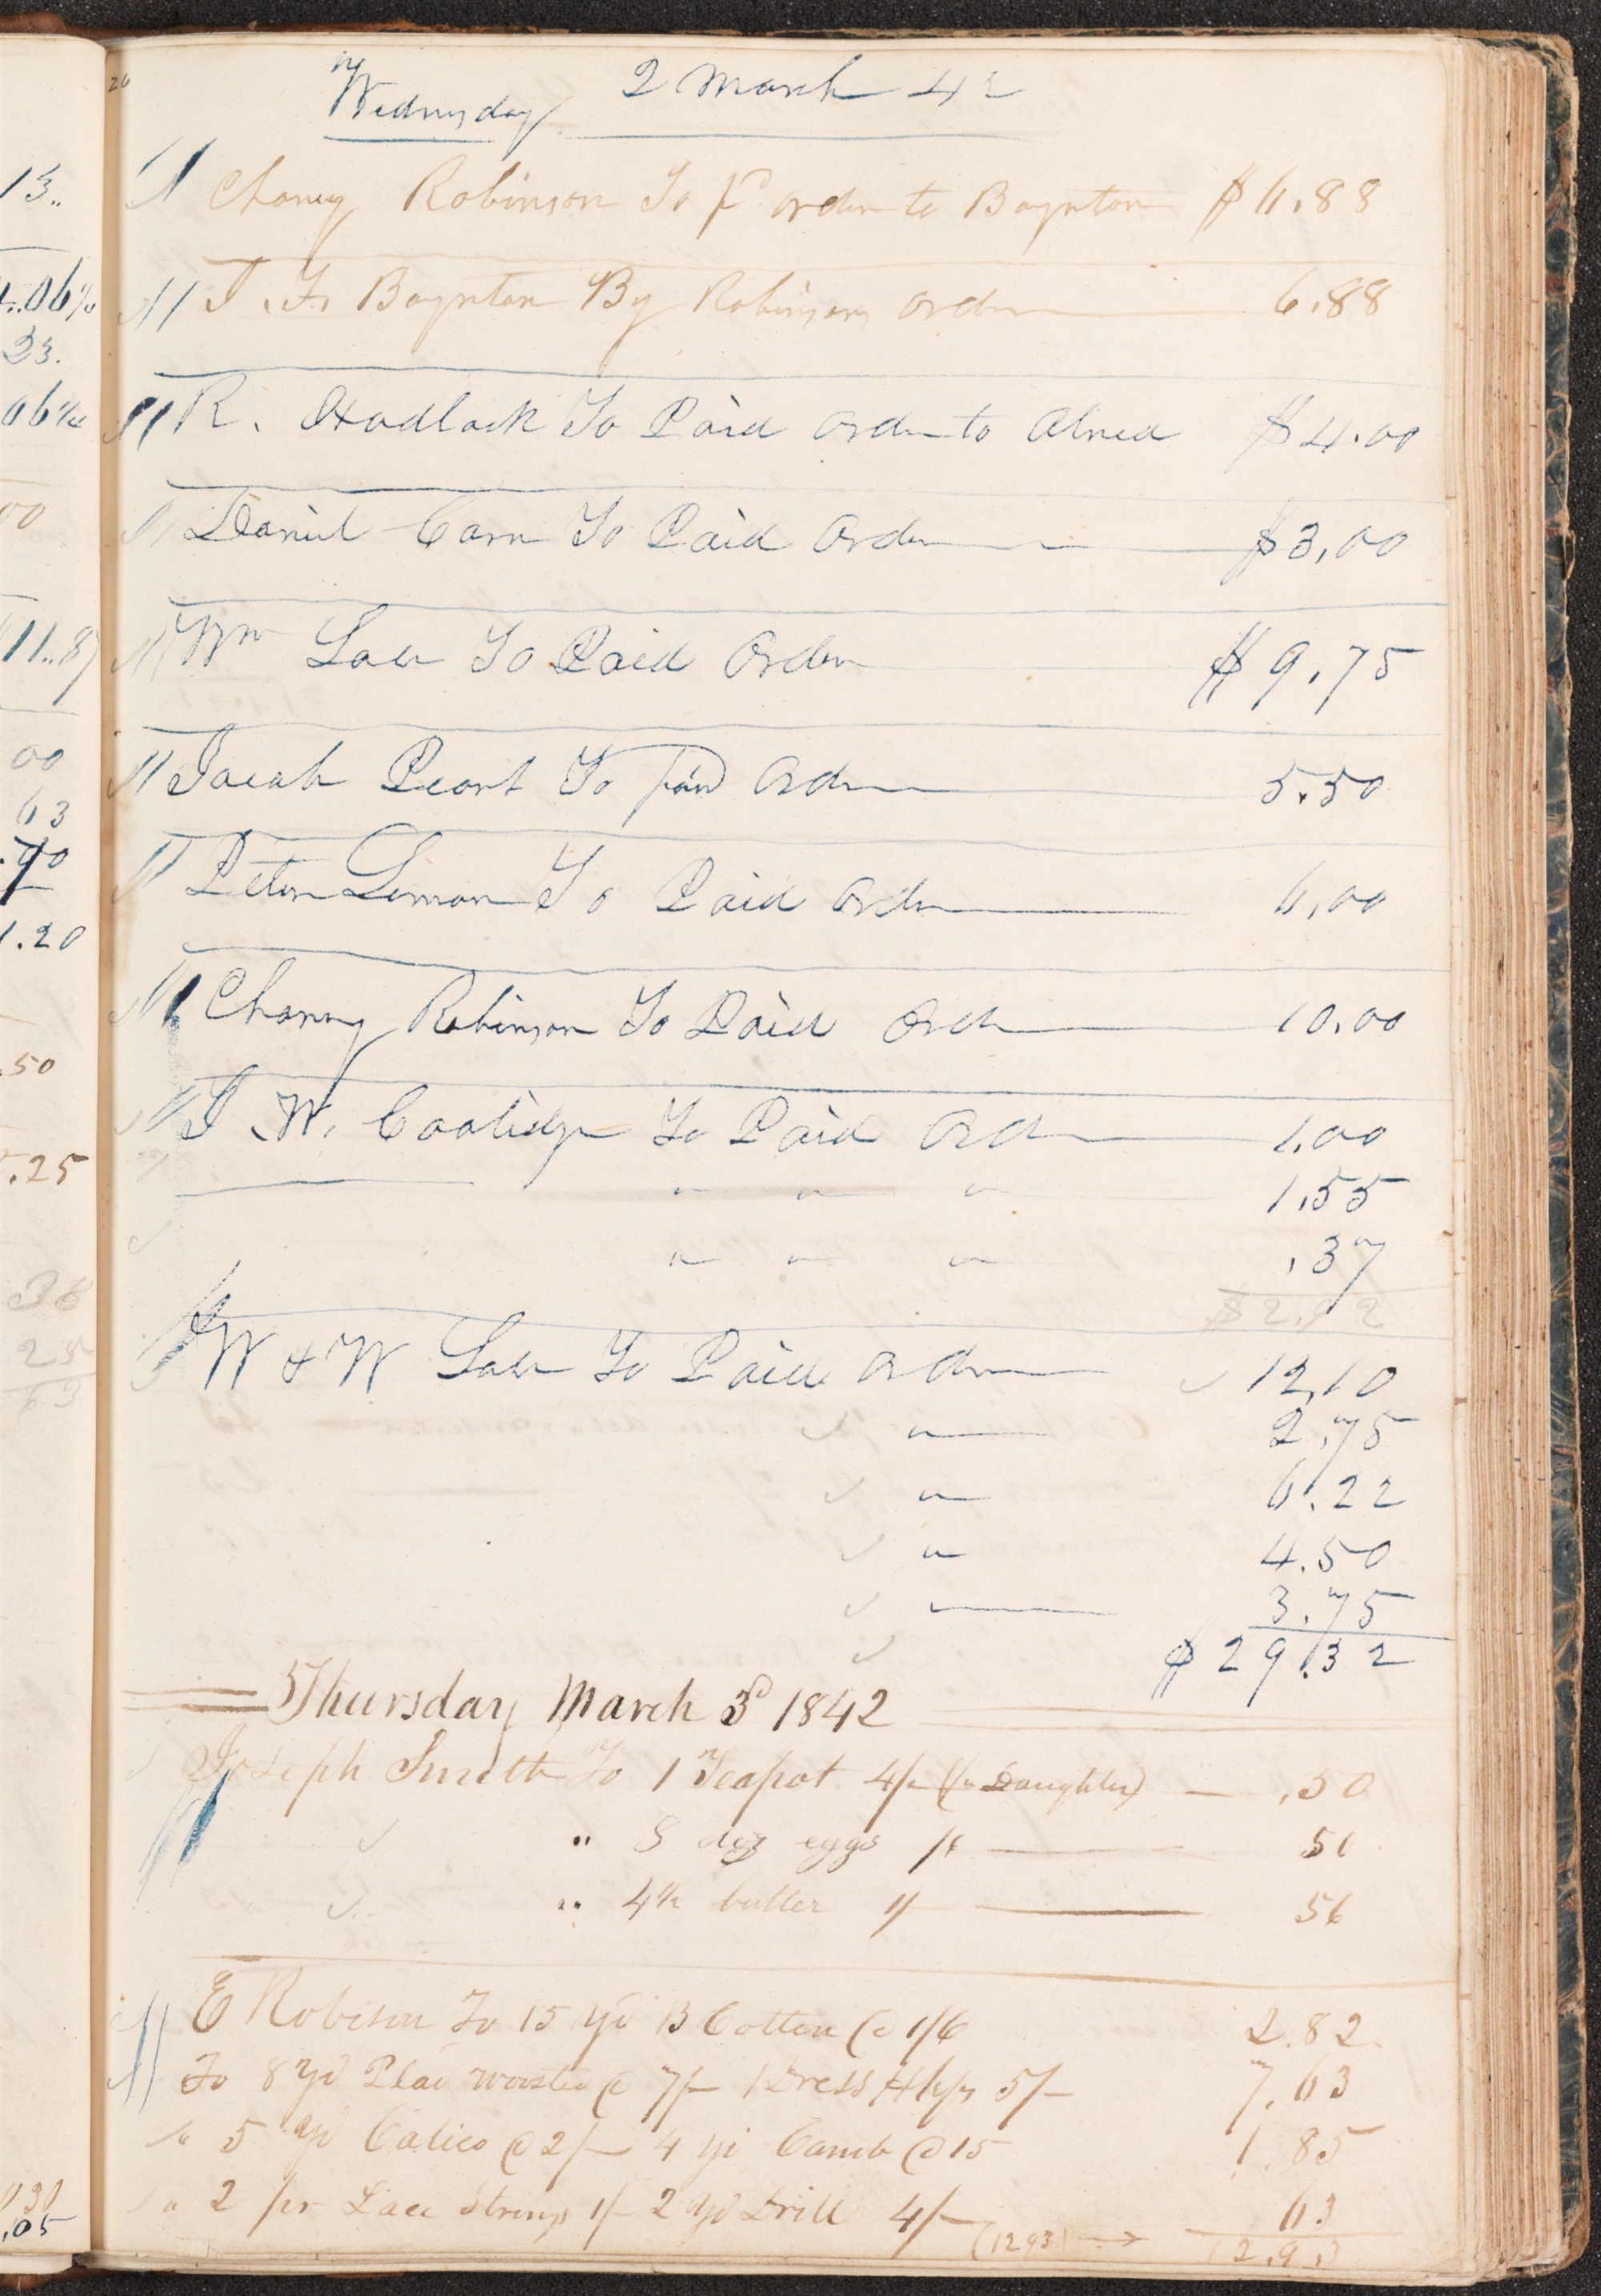 26
Wednesday 2 March 42
Chancy Robinson To pd order to Boynton $6.88
Boynton By Robinsons order 6.88
R. Hadlock To Paid order to Alred $4.00
Daniel Carn To Paid Order $3,00
Wm Law To Paid Order $9.75
Jacob Peart To paid Order 5.50
Peter Lemon To Paid order 6,00
Chancy Robinson To Paid Ord 10.00
J. W. Coolidge To Paid Ord 1.00
" " " 1.55
" " " .37
$2.92
W & W Law To Paid Order 12,10
" 2.75
" 6.22
" 4.50
3.75
$29.32
Thursday March 3d 1842
Joseph Smith To 1 Teapot 4/- (for Daughter) .50
" 8 doz eggs /6 50
" 4 lb butter 1/ 56
E Robison To 15 yd B Cotten @ 1/6 2.82
To 8 yd @ 7/- 1 Dress 5/- 7.63
" 5 yd Calico @ 2/- 4 yd Camb @ 15 1.85
" 2 pr Lace Strings 1/- 2 yd Drill 4/- 63
(1293) → 12.93
13..
23.
00
11..87
00
63
.70
1.20
.50
.25
38
25
63
.05